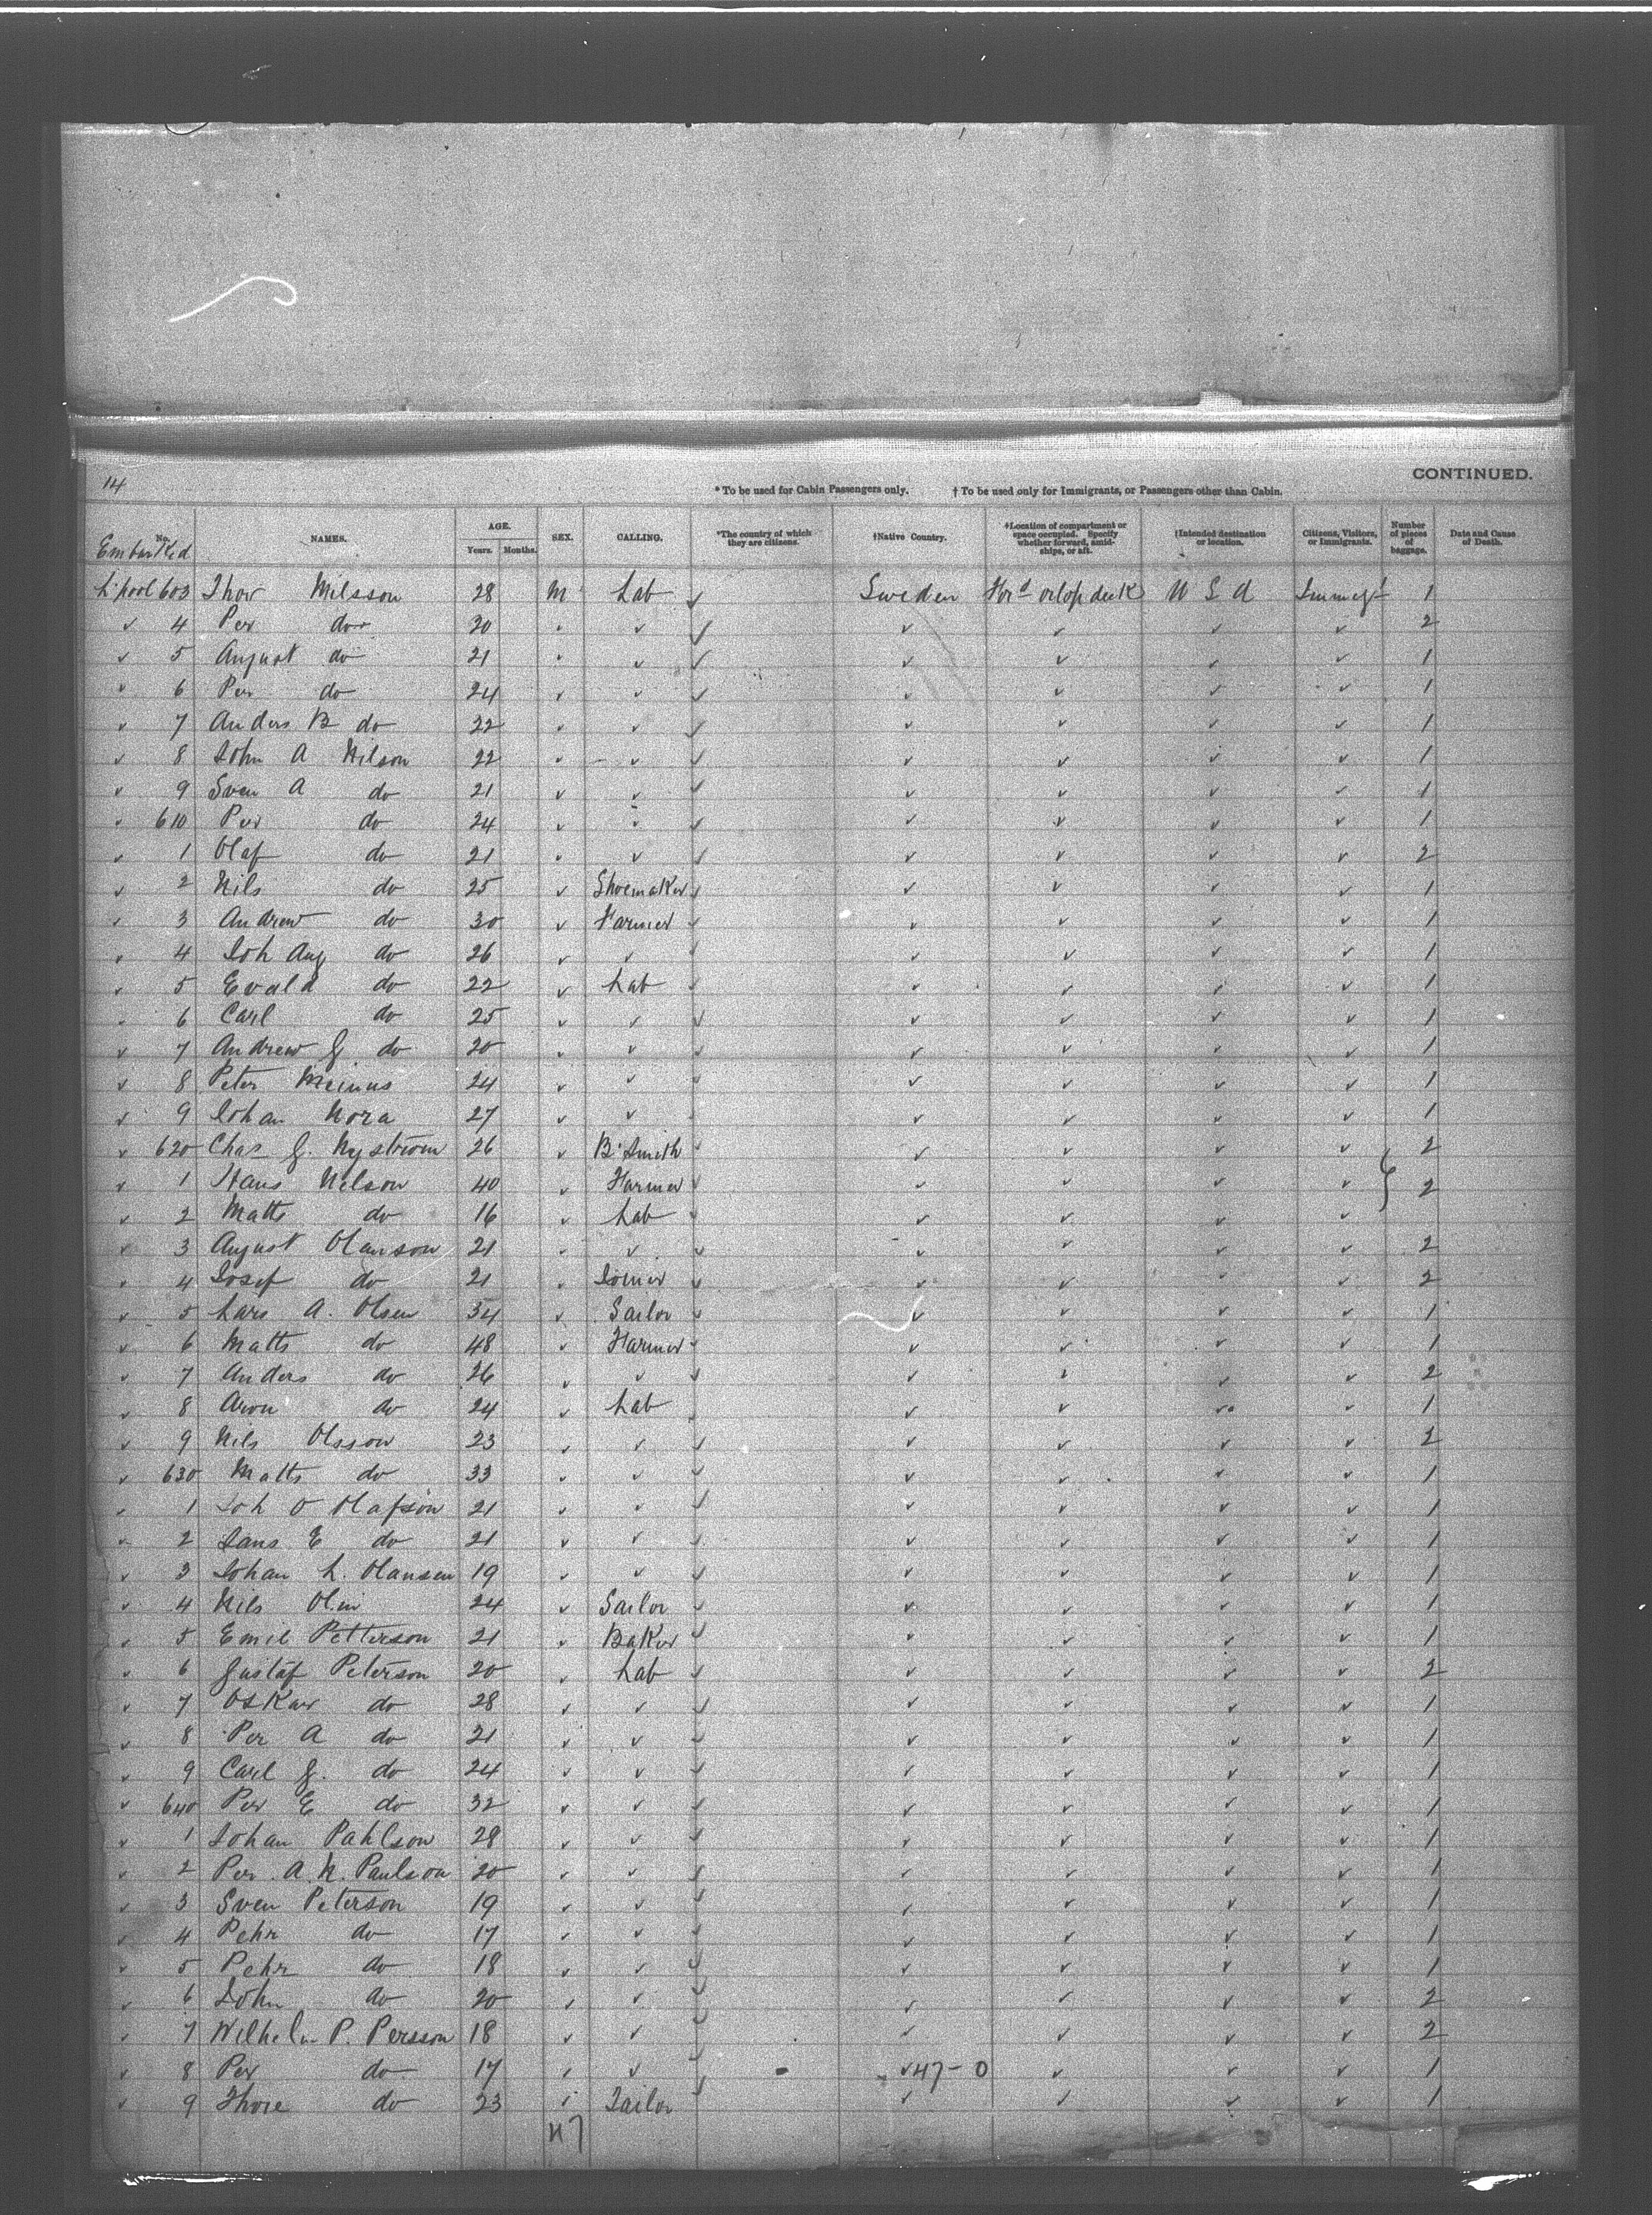 14
CONTINUED.
* To be used for Cabin Passengers only. † To be used only for Immigrants, or Passengers other than Cabin.
No. Embarked NAMES. AGE. Years. Months. SEX. CALLING. *The country of which they are citizens. †Native Country. †Location of compartment or space occupied. Specify whether forward, amidships, or aft. †Intended destination or location. Citizens, Visitors, or Immigrants. Number of pieces of baggage. Date and Cause of Death.
L'pool 603 Thor Nilsson 28 M Lab ✓ Sweden For^d orlop deck U S A Immegt 1
✓ 4 Per do 20 ✓ ✓ ✓ ✓ ✓ ✓ ✓ 2
✓ 5 August do 21 ✓ ✓ ✓ ✓ ✓ ✓ ✓ 1
✓ 6 Per do 24 ✓ ✓ ✓ ✓ ✓ ✓ ✓ 1
✓ 7 Anders B do 22 ✓ ✓ ✓ ✓ ✓ ✓ ✓ 1
✓ 8 John A Nilson 22 ✓ ✓ ✓ ✓ ✓ ✓ ✓ 1
✓ 9 Sven A do 21 ✓ ✓ ✓ ✓ ✓ ✓ ✓ 1
✓ 610 Per do 24 ✓ ✓ ✓ ✓ ✓ ✓ ✓ 1
✓ 1 Olaf do 21 ✓ ✓ ✓ ✓ ✓ ✓ ✓ 2
✓ 2 Nils do 25 ✓ Shoemaker ✓ ✓ ✓ ✓ ✓ 1
✓ 3 Andrew do 30 ✓ Farmer ✓ ✓ ✓ ✓ ✓ 1
✓ 4 Joh Aug do 26 ✓ ✓ ✓ ✓ ✓ ✓ ✓ 1
✓ 5 Evald do 22 ✓ Lab ✓ ✓ ✓ ✓ ✓ 1
✓ 6 Carl do 25 ✓ ✓ ✓ ✓ ✓ ✓ ✓ 1
✓ 7 Andrew G do 20 ✓ ✓ ✓ ✓ ✓ ✓ ✓ 1
✓ 8 Peter 24 ✓ ✓ ✓ ✓ ✓ ✓ ✓ 1
✓ 9 Johan Nora 27 ✓ ✓ ✓ ✓ ✓ ✓ 1
✓ 620 Chas G. Nystrom 26 ✓ B'Smith ✓ ✓ ✓ ✓ ✓ 2
✓ 1 Hans Nelson 40 ✓ Farmer ✓ ✓ ✓ ✓ ✓ } 2
✓ 2 Matts do 16 ✓ Lab ✓ ✓ ✓ ✓
✓ 3 August Olauson 21 ✓ ✓ ✓ ✓ ✓ ✓ ✓ 2
✓ 4 Josef do 21 ✓ Joiner ✓ ✓ ✓ ✓ ✓ 2
✓ 5 Lars A. Olsen 34 ✓ Sailor ✓ ✓ ✓ ✓ ✓ 1
✓ 6 Matts do 48 ✓ Farmer ✓ ✓ ✓ ✓ ✓ 1
✓ 7 Anders do 26 ✓ ✓ ✓ ✓ ✓ ✓ ✓ 2
✓ 8 Aron do 24 ✓ Lab ✓ ✓ ✓ ✓ 1
✓ 9 Nils Olsson 23 ✓ ✓ ✓ ✓ ✓ ✓ ✓ 2
✓ 630 Matts do 33 ✓ ✓ ✓ ✓ ✓ ✓ ✓ 1
✓ 1 Joh O Olafson 21 ✓ ✓ ✓ ✓ ✓ ✓ ✓ 1
✓ 2 E do 21 ✓ ✓ ✓ ✓ ✓ ✓ ✓ 1
✓ 3 Johan L. Olansen 19 ✓ ✓ ✓ ✓ ✓ ✓ ✓ 1
✓ 4 Nils Olin 24 ✓ Sailor ✓ ✓ ✓ ✓ ✓ 1
✓ 5 Emil Petterson 21 ✓ Baker ✓ ✓ ✓ ✓ ✓ 1
✓ 6 Gustaf Peterson 20 ✓ Lab ✓ ✓ ✓ ✓ ✓ 2
✓ 7 Oskar do 28 ✓ ✓ ✓ ✓ ✓ ✓ ✓ 1
✓ 8 Per A do 21 ✓ ✓ ✓ ✓ ✓ ✓ ✓ 1
✓ 9 Carl G. do 24 ✓ ✓ ✓ ✓ ✓ ✓ ✓ 1
✓ 640 Per E do 32 ✓ ✓ ✓ ✓ ✓ ✓ ✓ 1
✓ 1 Johan Pahlson 28 ✓ ✓ ✓ ✓ ✓ ✓ ✓ 1
✓ 2 Per. A. N. Paulson 20 ✓ ✓ ✓ ✓ ✓ ✓ ✓ 1
✓ 3 Sven Peterson 19 ✓ ✓ ✓ ✓ ✓ ✓ ✓ 1
✓ 4 Pehr do 17 ✓ ✓ ✓ ✓ ✓ ✓ ✓ 1
✓ 5 Pehr do 18 ✓ ✓ ✓ ✓ ✓ ✓ ✓ 1
✓ 6 John do 20 ✓ ✓ ✓ ✓ ✓ ✓ ✓ 2
✓ 7 Wilhelm P. Persson 18 ✓ ✓ ✓ ✓ ✓ ✓ ✓ 2
✓ 8 Per do 17 ✓ ✓ ✓ ✓ 47-0 ✓ ✓ ✓ 1
✓ 9 Thore do 23 ✓ Tailor ✓ ✓ ✓ ✓ ✓ 1
47